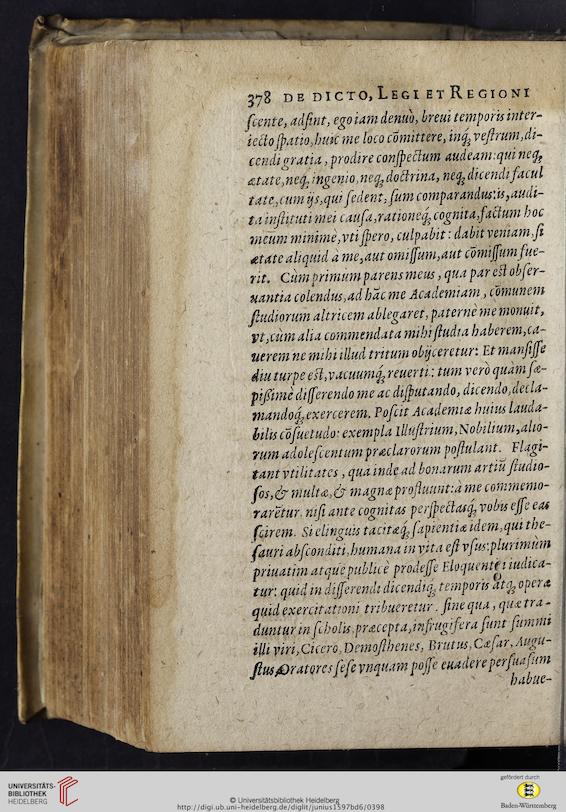 378 DE DICTO, LEGI ET REGIONI
ſcente, adſint, ego iam denuò, breui temporis inter-
iecto ſpatio, huic me loco cōmittere, inq́; veſtrum, di-
cendi gratia, prodire conſpectum audeam: qui neq́;
ætate, neq́; ingenio, neq́; doctrina, neq́; dicendi facul
tate, cum ijs, qui ſedent, ſum comparandus: is, audi-
ta inſtituti mei cauſa, rationeq́; cognita, factum hoc
meum minimè, vti ſpero, culpabit: dabit veniam, ſi
ætate aliquid à me, aut omiſſum, aut cōmiſſum fue-
rit. Cùm primùm parens meus, qua par eſt obſer-
uantia colendus, ad hāc me Academiam, cōmunem
ſtudiorum altricem ablegaret, paternè me monuit,
vt, cùm alia commendata mihi ſtudia haberem, ca-
uerem ne mihi illud tritum obijceretur: Et manſiſſe
diu turpe eſt, vacuumq́; reuerti: tum verò quàm ſæ-
pißimè diſſerendo me ac diſputando, dicendo, decla-
mandoq́; exercerem. Poſcit Academiæ huius lauda-
bilis cōſuetudo: exempla Illuſtrium, Nobilium, alio-
rum adoleſcentum præclarorum poſtulant. Flagi-
tant vtilitates, quæ inde ad bonarum artiū ſtudio-
ſos, & multæ, & magnæ profluunt: à me commemo-
rarētur, niſi ante cognitas perſpectasq́; vobis eſſe eas
ſcirem. Si elinguis tacitæq́; ſapientiæ idem, qui the-
ſauri abſconditi, humana in vita eſt vſus: plurimùm
priuatim atque publicè prodeſſe Eloquentia iudica-
tur: quid in diſſerendi dicendiq́; temporis atq́; operæ
quid exercitationi tribueretur. ſine qua, quæ tra-
duntur in ſcholis, præcepta, infrugifera ſunt ſummi
illi viri, Cicero, Demoſthenes, Brutus, Cæſar, Augu-
ſtus Oratores ſeſe vnquam poſſe euadere perſuaſum
habue-
UNIVERSITÄTS-
BIBLIOTHEK
HEIDELBERG
© Universitätsbibliothek Heidelberg
http://digi.ub.uni-heidelberg.de/diglit/junius1597bd6/0398
gefördert durch
Baden-Württemberg